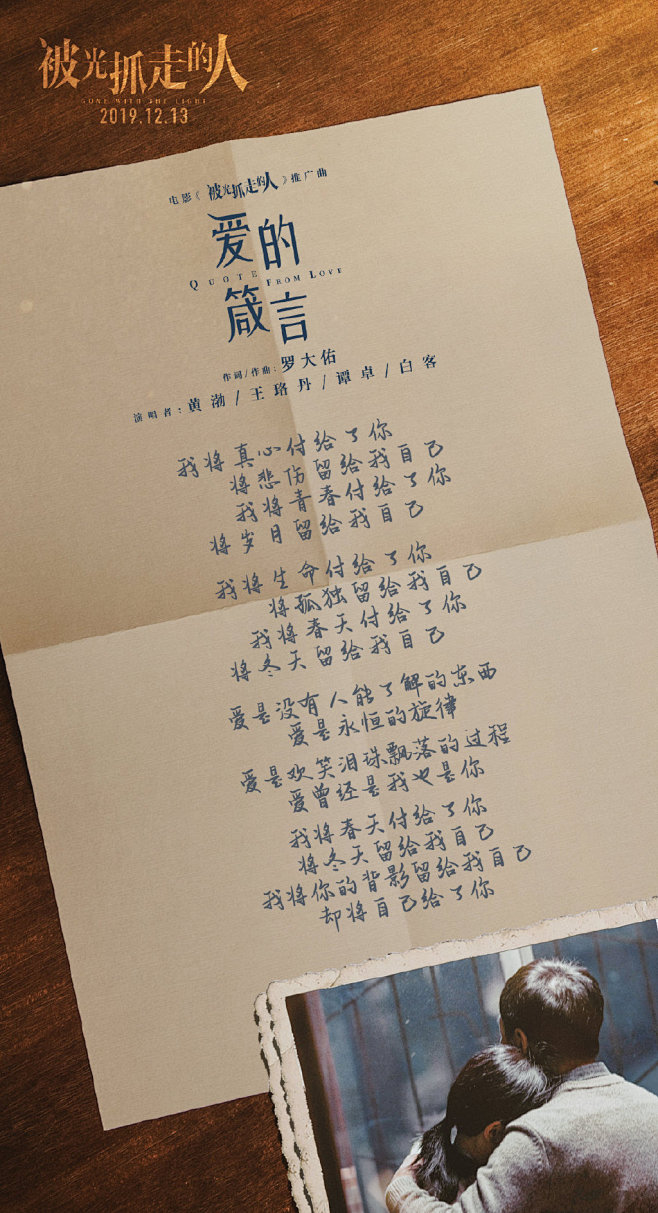 被光抓走的人
GONE WITH THE LIGHT
2019.12.13
电影《被光抓走的人》推广曲
爱的
QUOTE FROM LOVE
箴言
作词/作曲：罗大佑
演唱者：黄渤/王珞丹/谭卓/白客
我将真心付给了你
将悲伤留给我自己
我将青春付给了你
将岁月留给我自己
我将生命付给了你
将孤独留给我自己
我将春天付给了你
将冬天留给我自己
爱是没有人能了解的东西
爱是永恒的旋律
爱是欢笑泪珠飘落的过程
爱曾经是我也是你
我将春天付给了你
将冬天留给我自己
我将你的背影留给我自己
却将自己给了你